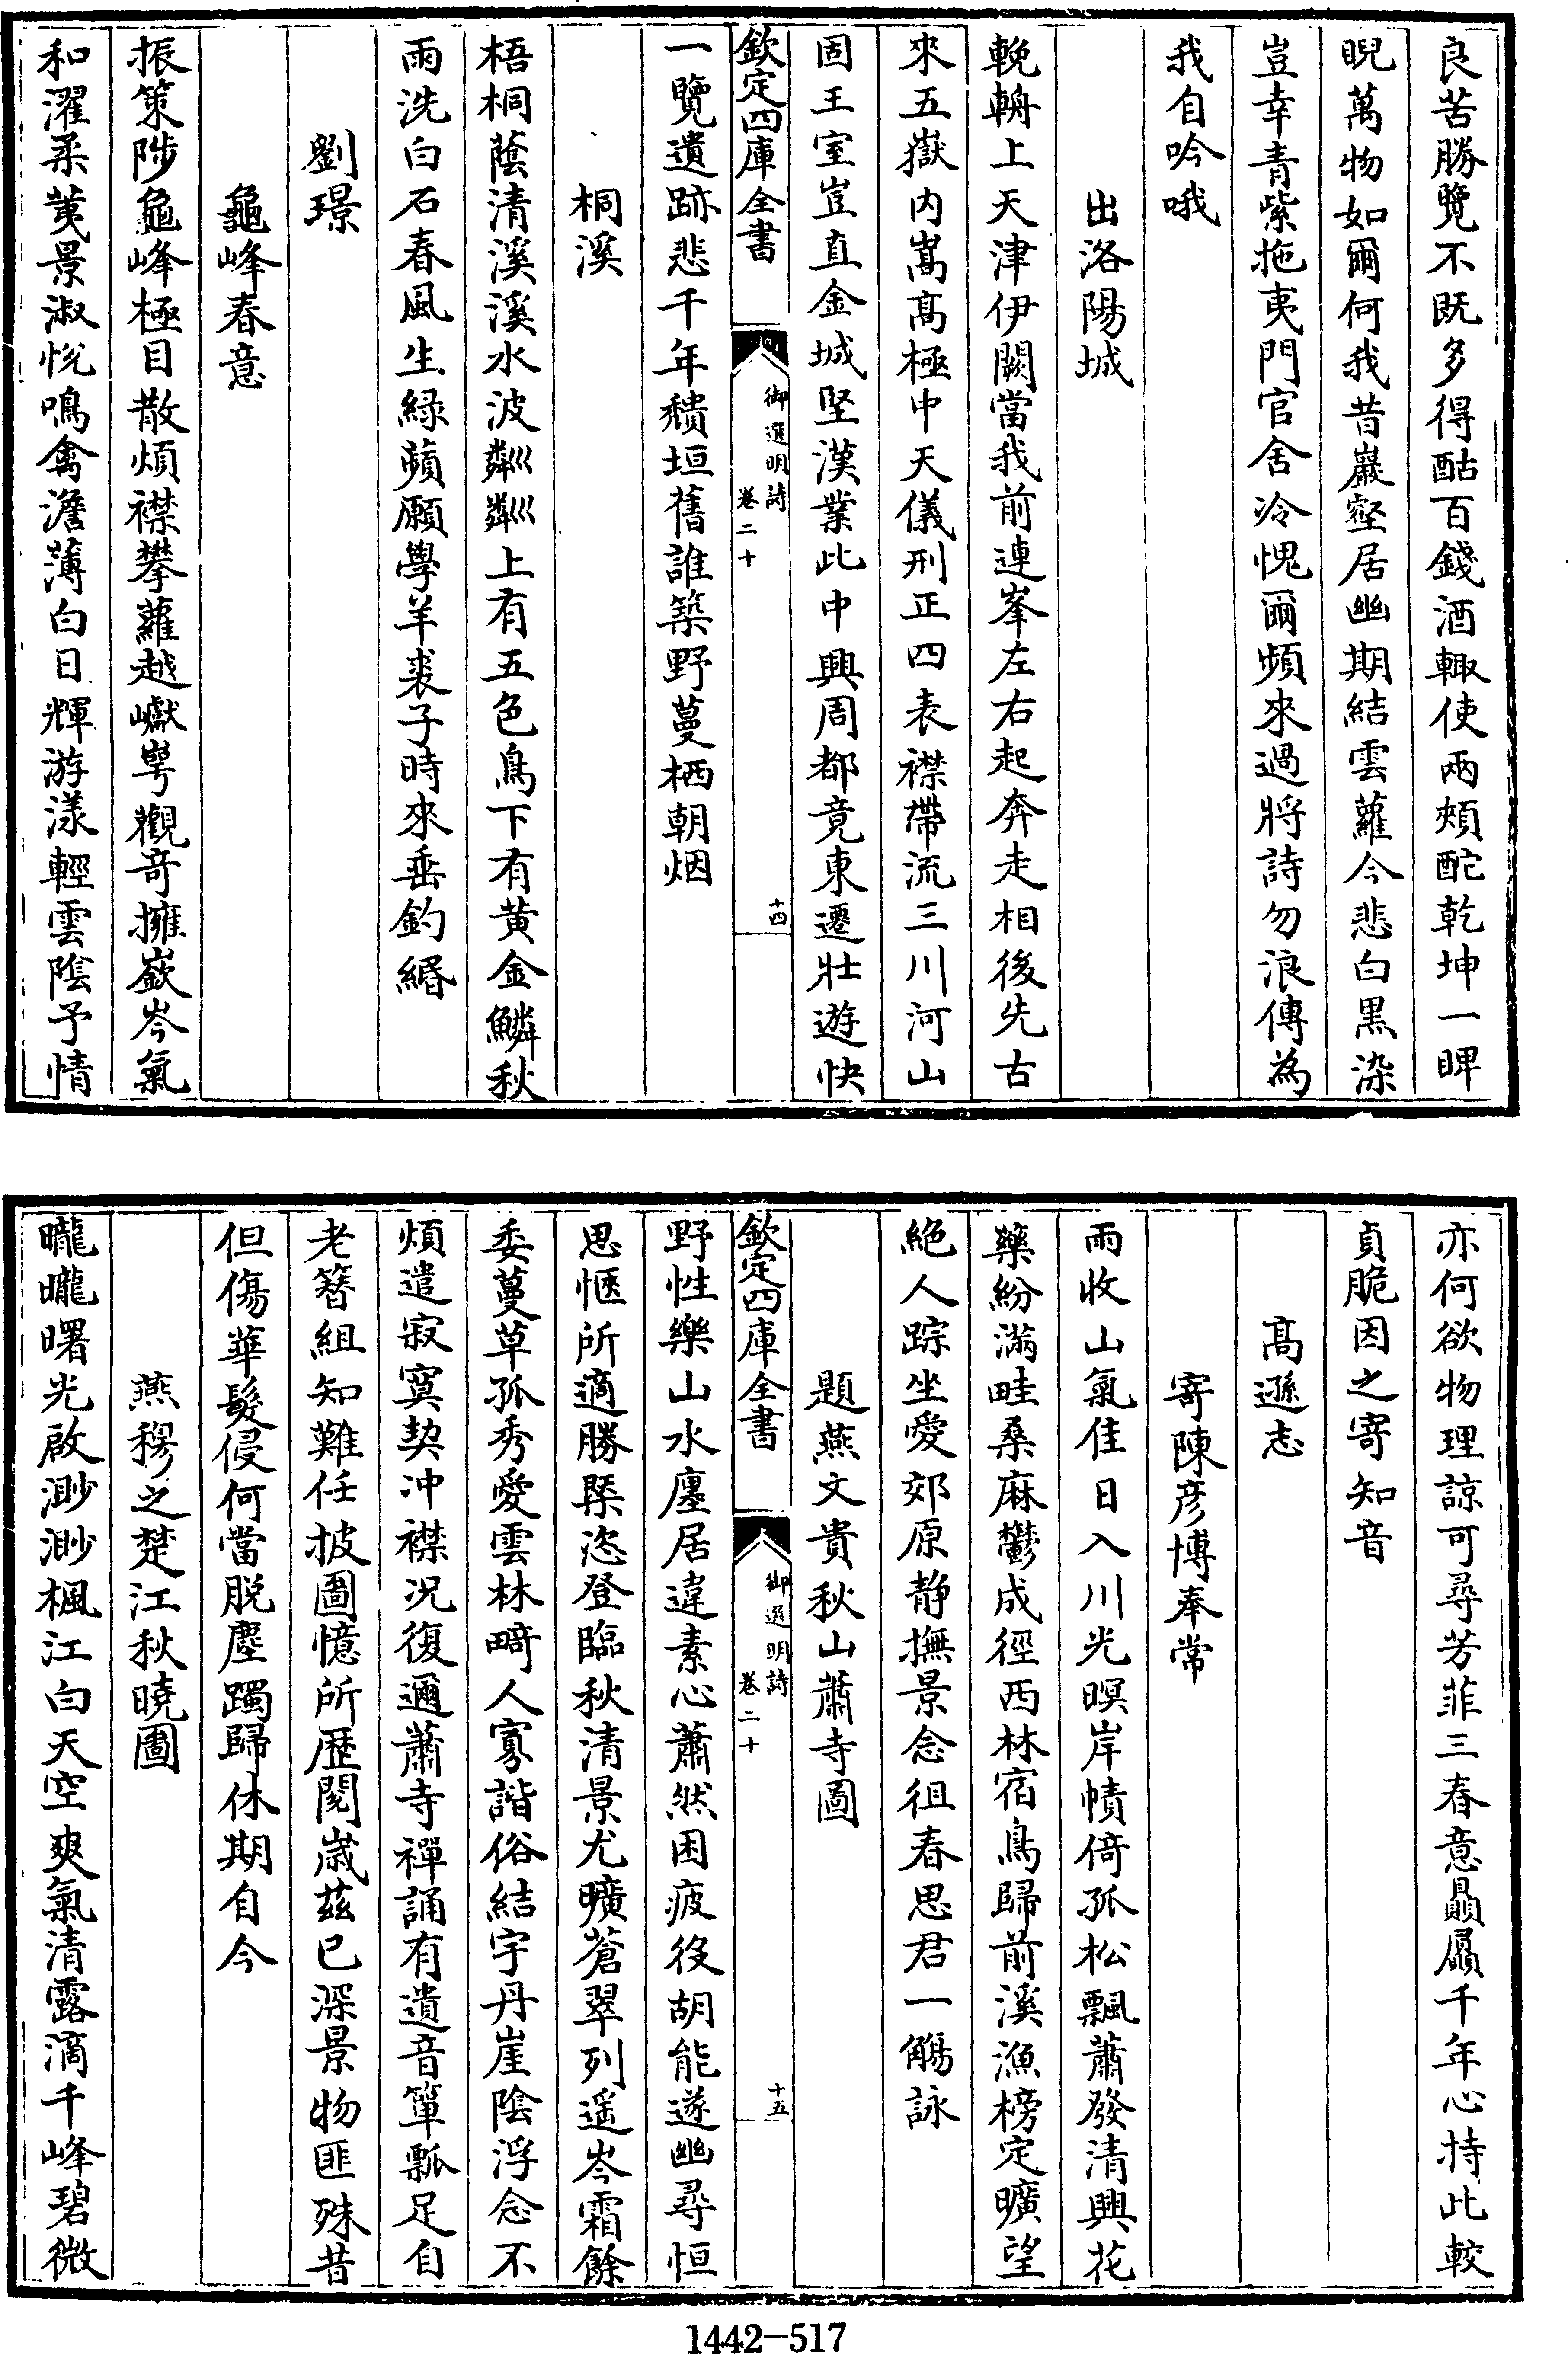 良苦勝覽不既多得酤百錢酒輙使兩頰酡乾坤一睥
睨萬物如爾何我昔巖壑居幽期結雲蘿今悲白黒染
豈幸青紫拖夷門官舍冷愧爾頻來過將詩勿浪傳為
我自吟哦
出洛陽城
輓輈上天津伊闕當我前連峯左右起奔走相後先古
來五嶽内嵩髙極中天儀刑正四表襟帶流三川河山
固王室豈直金城堅漢業此中興周都竟東遷壯遊快
欽定四庫全書
御選明詩
卷二十
十四
一覽遺跡悲千年穨垣舊誰築野蔓栖朝烟
桐溪
梧桐蔭清溪溪水波粼巛粼巛上有五色鳥下有黄金鱗秋
雨洗白石春風生緑蘋願學羊裘子時來垂釣緡
劉璟
龜峰春意
振策陟龜峰極目散煩襟攀蘿越巘崿觀奇擁嶔岑氣
和濯柔荑景淑悅鳴禽澹薄白日輝游漾輕雲陰予情
亦何欲物理諒可尋芳菲三春意贔屭千年心持此較
貞脆因之寄知音
髙遜志
寄陳彦博奉常
雨收山氣佳日入川光暝岸幘倚孤松飄蕭發清興花
藥紛滿畦桑麻鬱成徑西林宿鳥歸前溪漁榜定曠望
絶人踪坐愛郊原静撫景念徂春思君一觴詠
題燕文貴秋山蕭寺圖
欽定四庫全書
御選明詩
卷二十
十五
野性樂山水廛居違素心蕭然困疲役胡能遂幽尋恒
思愜所適勝槩恣登臨秋清景尤曠蒼翠列遥岑霜餘
委蔓草孤秀愛雲林畸人寡諧俗結宇丹崖陰浮念不
煩遣寂寞契冲襟况復邇蕭寺禪誦有遺音簞瓢足自
老簪組知難任披圖憶所歴閱嵗茲已深景物匪殊昔
但傷華髮侵何當脱塵躅歸休期自今
燕穆之楚江秋曉圖
曨曨曙光啟渺渺楓江白天空爽氣清露滴千峰碧微
1442—517